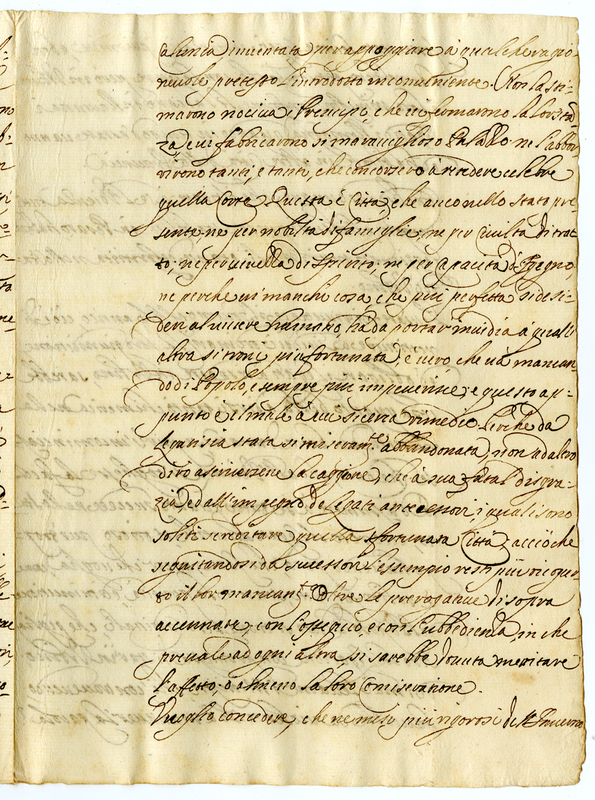 calunnia inventata per appoggiare à qualche ragio
nevole pretesto l'introdotto inconveniente. Non la sti=
marono nociva i Prencipi, che vi formarono la loro stã
za e vi fabbricarono si maraviglioso Palazzo ne l'abbor
rirono tanti, e tanti, che concorsero à rendere celebre
quella Corte. Questa è Città, che anco nello stato pre=
sente ne per nobiltà di famiglie, ne per civiltà di trat
to, ne per vivezza di spirito, ne per capacità d'Ingegno
ne perche vi manchi cosa, che più perfetta si desi=
deri al vivere humano, ha da portar invidia à qualsi
altra si trovi più fortunata, è vero che và mancan
do di Popolo, e sempre più impoverisce, e questo ap=
punto è il male à cui si cerca rimedio. Perche da
Legati sia stata si miseram.te abbandonata, non ad altro
devo ascriversene la caggione, che à sua fatal disgra=
zia, ed all'impegno de Legati antecessori, i quali sono
soliti screditare questa sfortunata Città, acciò che
seguitandosi da successori l'esempio resti più ricoper
to il lor mancam.to. Oltre le prerogative di sopra
accennate, con l'ossequio, e con l'ubbedienza, in che
prevale ad ogni altra si sarebbe dovuta meritare
l'affetto, ò almeno la loro Comiserazione.
Voglio concedere, che ne mesi più rigorosi dell'Inverno